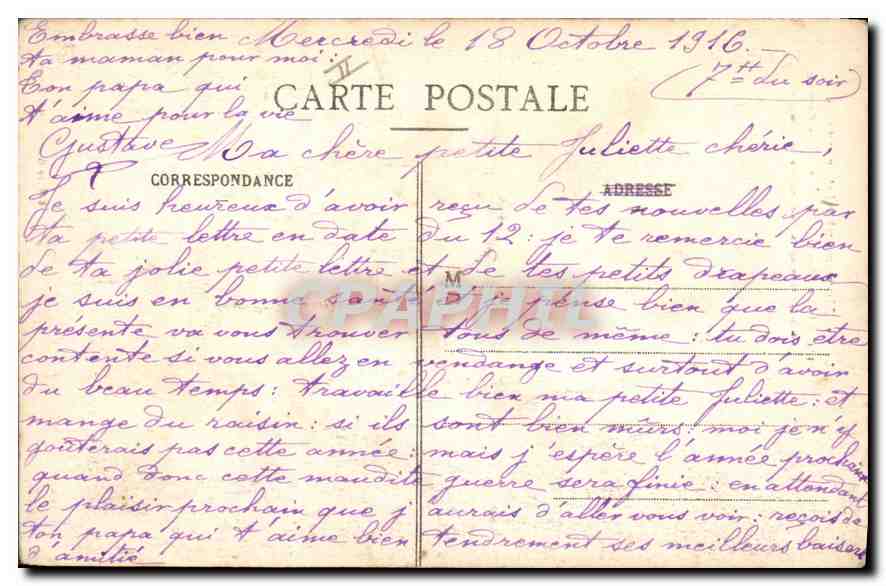 Embrasse bien
ta maman pour moi :
Ton papa qui
t'aime pour la vie
Gustave
Mercredi le 18 Octobre 1916.
II
(7 H du soir)
CARTE POSTALE
Ma chère petite Juliette chérie,
CORRESPONDANCE
ADRESSE
Je suis heureux d'avoir reçu de tes nouvelles par
ta petite lettre en date du 12 : je te remercie bien
de ta jolie petite lettre et de tes petits drapeaux
je suis en bonne santé et je pense bien que la
présente va vous trouver tous de même : tu dois être
contente si vous allez en vendange et surtout d'avoir
du beau temps : travaille bien ma petite Juliette : et
mange du raisin : si ils sont bien mûrs : moi je n'y
goûterais pas cette année : mais j'espère l'année prochaine
quand donc cette maudite guerre sera finie : en attendant
le plaisir prochain que j'aurais d'aller vous voir : reçois de
ton papa qui t'aime bien tendrement ses meilleurs baisers
d'amitié
M
D
CPAPHIL